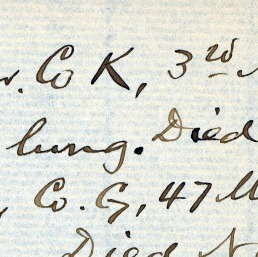 Co K, 3rd
lung. Died
Co. G, 47 M
Died N